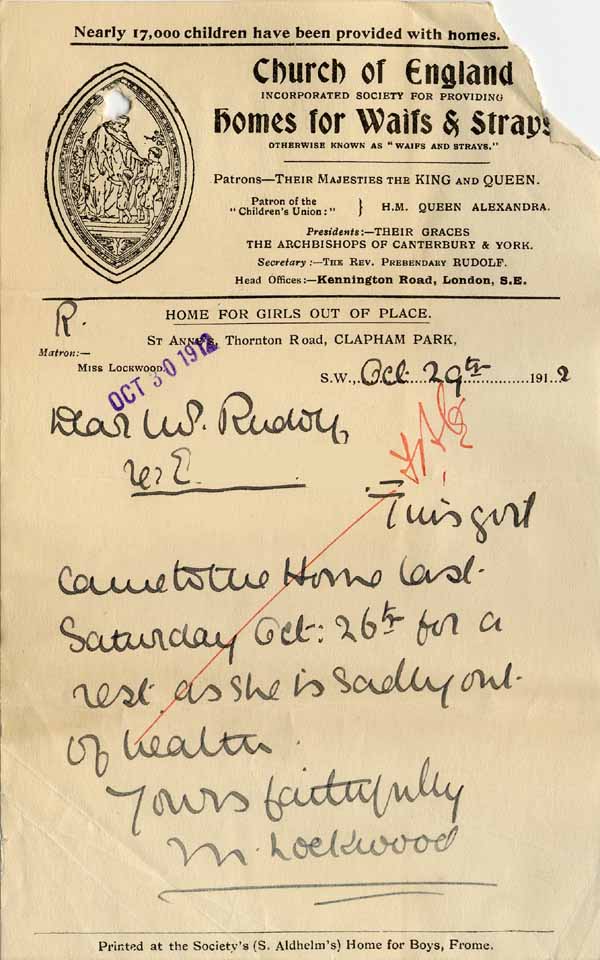 Nearly 17,000 children have been provided with homes.
Church of England
INCORPORATED SOCIETY FOR PROVIDING
Homes for Waifs & Strays
OTHERWISE KNOWN AS "WAIFS AND STRAYS."
Patrons—THEIR MAJESTIES THE KING AND QUEEN.
Patron of the "Children's Union:" } H.M. QUEEN ALEXANDRA.
Presidents:—THEIR GRACES
THE ARCHBISHOPS OF CANTERBURY & YORK.
Secretary:—THE REV. PREBENDARY RUDOLF.
Head Offices:—Kennington Road, London, S.E.
R.
HOME FOR GIRLS OUT OF PLACE.
ST ANNE'S, Thornton Road, CLAPHAM PARK,
Matron:—
MISS LOCKWOOD.
OCT 30 1912
S.W., Oct 29th 1912
Dear Mr. Rudolf,
re, E.
This girl
came to the Home last
Saturday Oct: 26th for a
rest as she is sadly out
of health.
Yours faithfully
M. Lockwood
Printed at the Society's (S. Aldhelm's) Home for Boys, Frome.